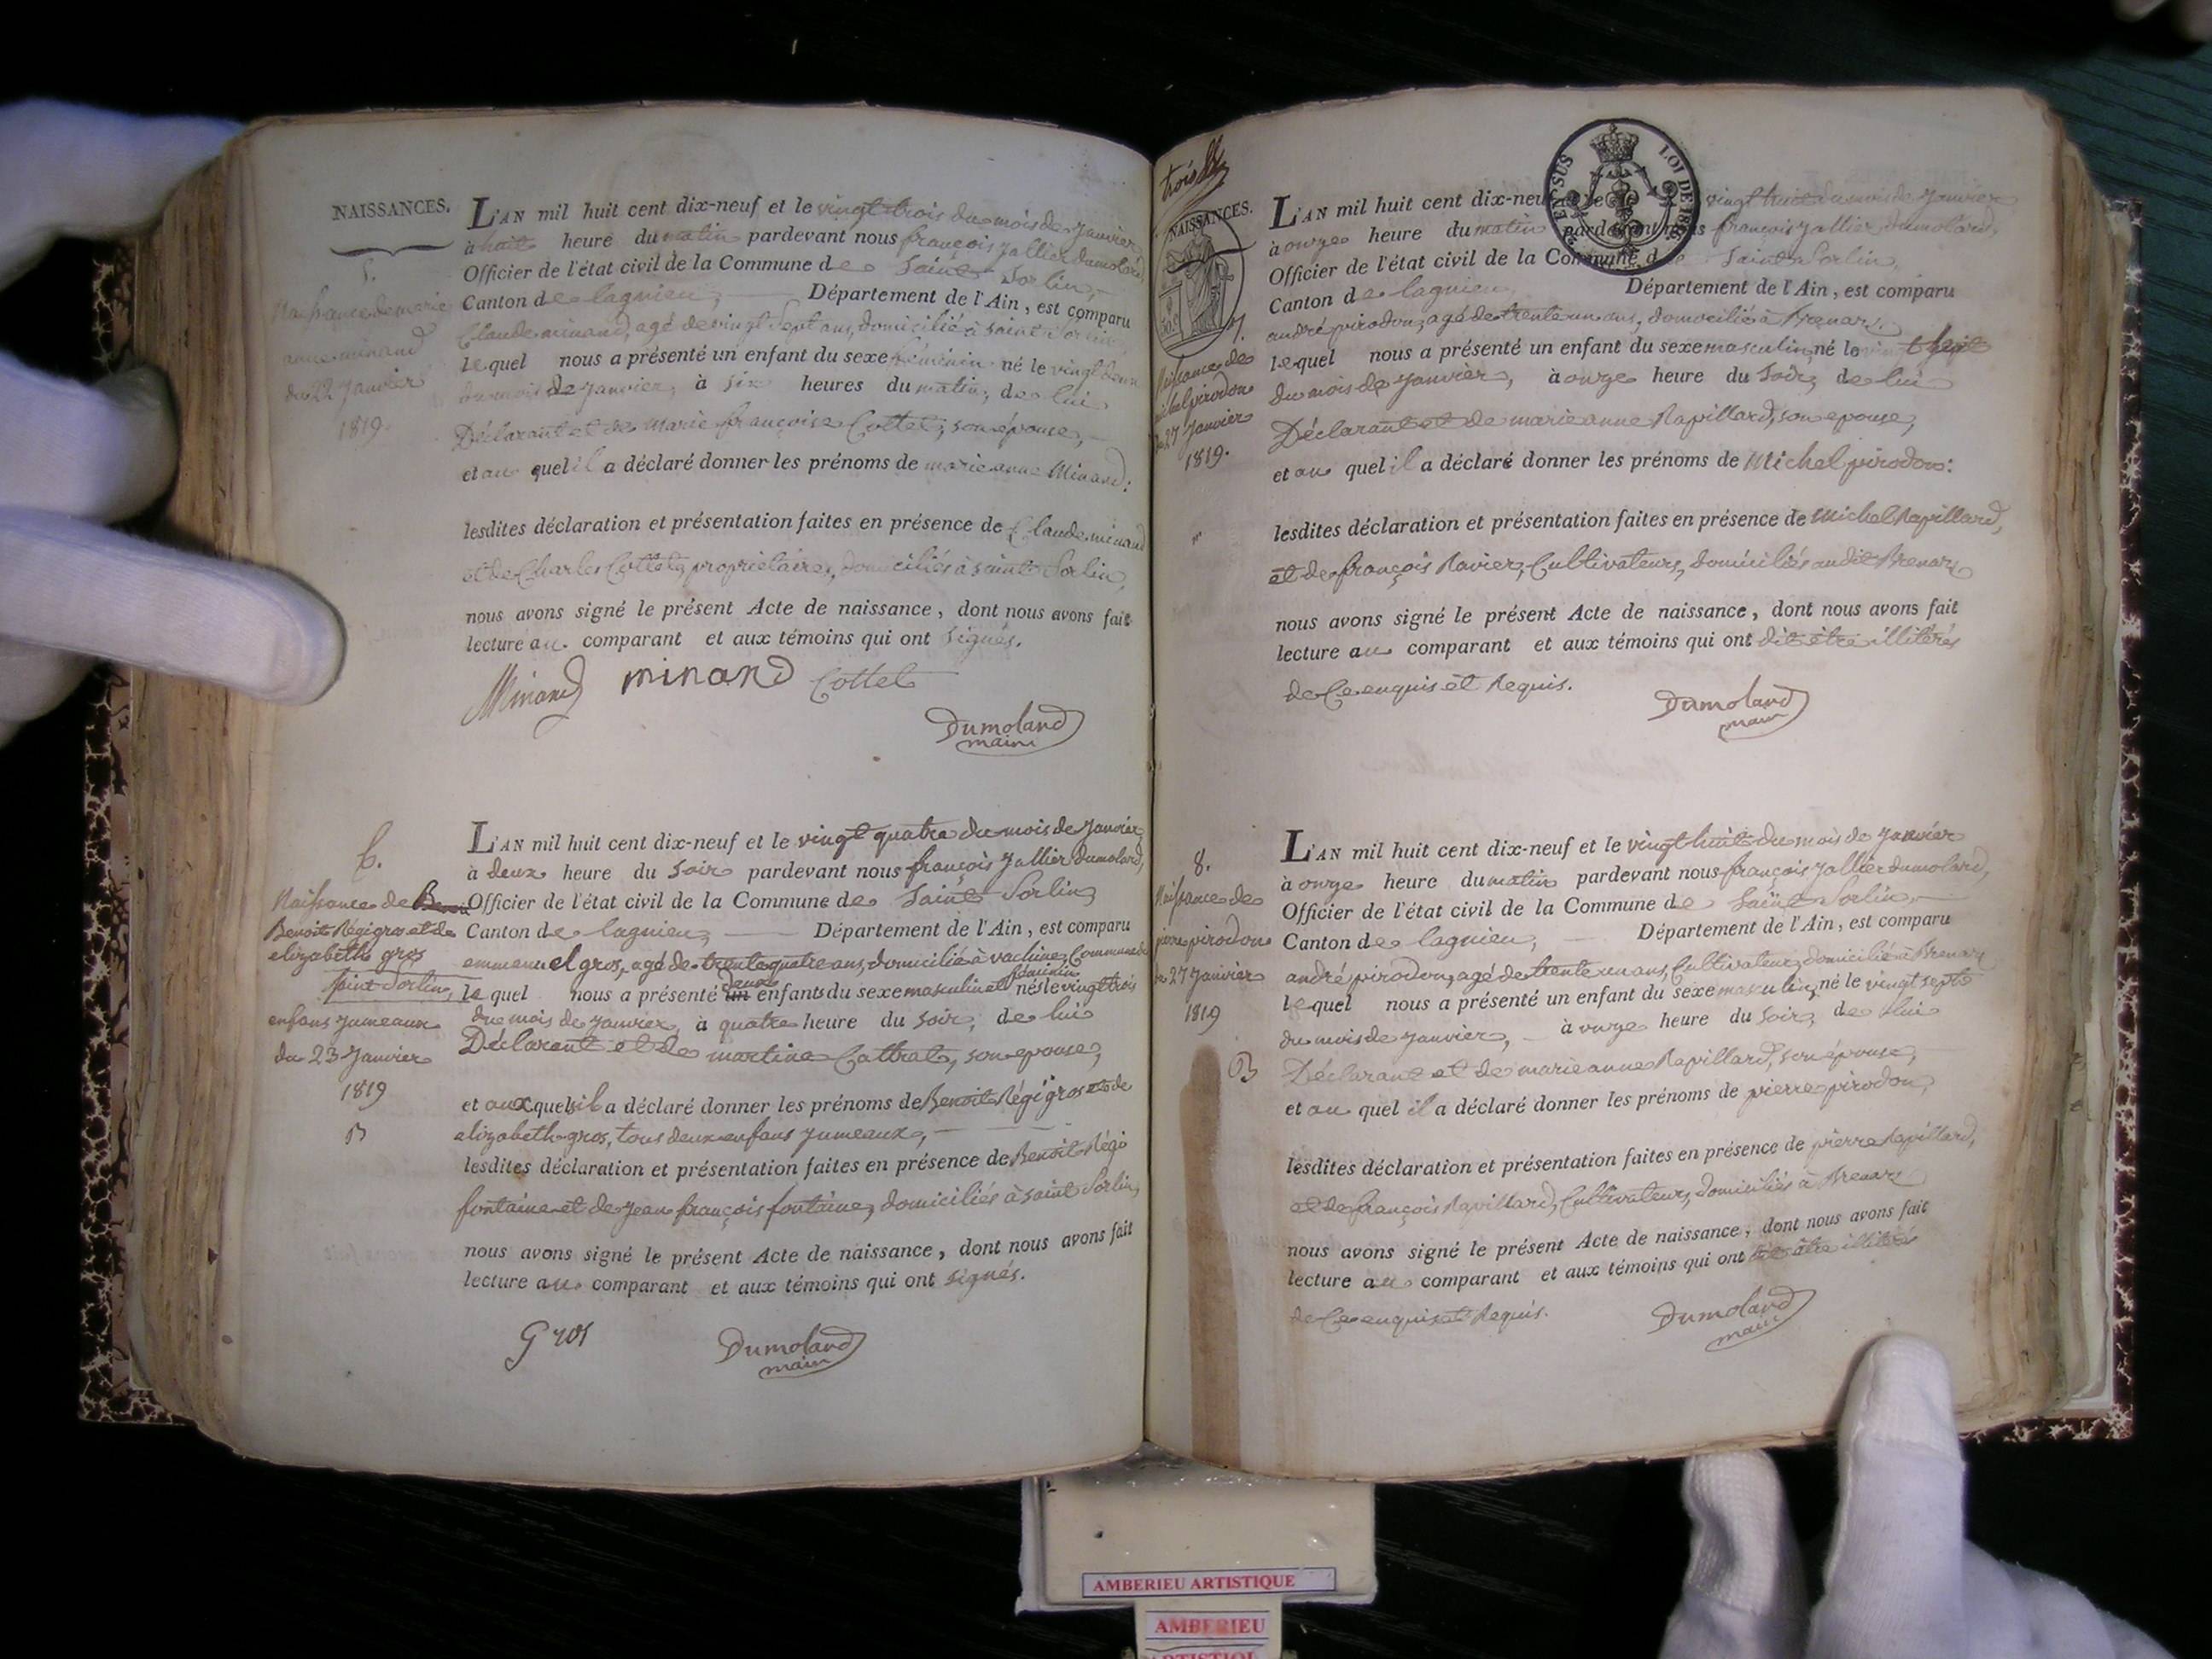 NAISSANCES.
5.
Naissance de marie
anne minand
du 22 Janvier
1819.
L'AN mil huit cent dix-neuf et le vingt trois du mois de Janvier
à huit heure du matin pardevant nous françois Jallier dumolard,
Officier de l'état civil de la Commune de Saint Sorlin,
Canton de lagnieu, Département de l'Ain, est comparu
Claude minand, agé de vingt sept ans, domicilié à saint Sorlin
lequel nous a présenté un enfant du sexe féminin né le vingt deux
du mois de Janvier, à six heures du matin, de lui
Déclarant et de marie françoise Cottet, son épouse,
et au quel il a déclaré donner les prénoms de marie anne Minand:
lesdites déclaration et présentation faites en présence de Claude minand
et de Charles Cottet, propriétaires, domiciliés à saint Sorlin,
nous avons signé le présent Acte de naissance, dont nous avons fait
lecture au comparant et aux témoins qui ont signés.
Minand minand Cottet
Dumolard
maire
6.
Naissance de
Benoit Régi gros et de
elizabeth gros
Saint Sorlin,
enfans Jumeaux
du 23 Janvier
1819
B
L'AN mil huit cent dix-neuf et le vingt quatre du mois de Janvier,
à deux heure du soir pardevant nous françois Jallier dumolard,
Officier de l'état civil de la Commune de Saint Sorlin,
Canton de lagnieu, Département de l'Ain, est comparu
emmanuel gros, agé de trente quatre ans, domicilié à vachine, Commune de
féminin
deux
le quel nous a présenté un enfants du sexe masculin et nés le vingt trois
du mois de Janvier, à quatre heure du soir, de lui
Déclarant et de martine Cattrat, son epouse,
et aux quels il a déclaré donner les prénoms de Benoit Régi gros et de
elizabeth gros, tous deux enfans Jumeaux,
lesdites déclaration et présentation faites en présence de Benoit Régi
fontaine et de Jean françois fontaine, domiciliés à saint Sorlin,
nous avons signé le présent Acte de naissance, dont nous avons fait
lecture au comparant et aux témoins qui ont signés.
Gros Dumolard
maire
trois
TEN SUS LOI DE 1816
NAISSANCES.
7.
Naissance de
michel pirodon
du 27 Janvier
1819.
L'AN mil huit cent dix-neuf et le vingt huit du mois de Janvier
à onze heure du matin pardevant nous françois Jallier dumolard,
Officier de l'état civil de la Commune de Saint Sorlin,
Canton de lagnieu, Département de l'Ain, est comparu
andré pirodon, agé de trente un ans, domicilié à Brenaz.
lequel nous a présenté un enfant du sexe masculin, né le vingt sept
du mois de Janvier, à onze heure du soir, de lui
Déclarant et de marie anne Rapillard, son epouse,
et au quel il a déclaré donner les prénoms de Michel pirodon:
lesdites déclaration et présentation faites en présence de Michel Rapillard,
et de françois Ravier, Cultivateurs, domiciliés audit Brenaz
nous avons signé le présent Acte de naissance, dont nous avons fait
lecture au comparant et aux témoins qui ont dit être illitérés
de Ce enquis et Requis.
Dumolard
maire
8.
Naissance de
pierre pirodon
du 27 Janvier
1819
B
L'AN mil huit cent dix-neuf et le vingt huit du mois de Janvier
à onze heure du matin pardevant nous françois Jallier dumolard,
Officier de l'état civil de la Commune de Saint Sorlin,
Canton de lagnieu, Département de l'Ain, est comparu
andré pirodon, agé de trente un ans, Cultivateur, domicilié à Brenaz
lequel nous a présenté un enfant du sexe masculin, né le vingt sept
du mois de Janvier, à onze heure du soir, de lui
Déclarant et de marie anne Rapillard, son épouse,
et au quel il a déclaré donner les prénoms de pierre pirodon,
lesdites déclaration et présentation faites en présence de pierre Rapillard,
et de françois Rapillard, Cultivateurs, domiciliés à Brenaz
nous avons signé le présent Acte de naissance, dont nous avons fait
lecture au comparant et aux témoins qui ont dit être illitérés
de Ce enquis et Requis.
Dumolard
maire
AMBERIEU ARTISTIQUE
AMBERIEU
ARTISTIQUE